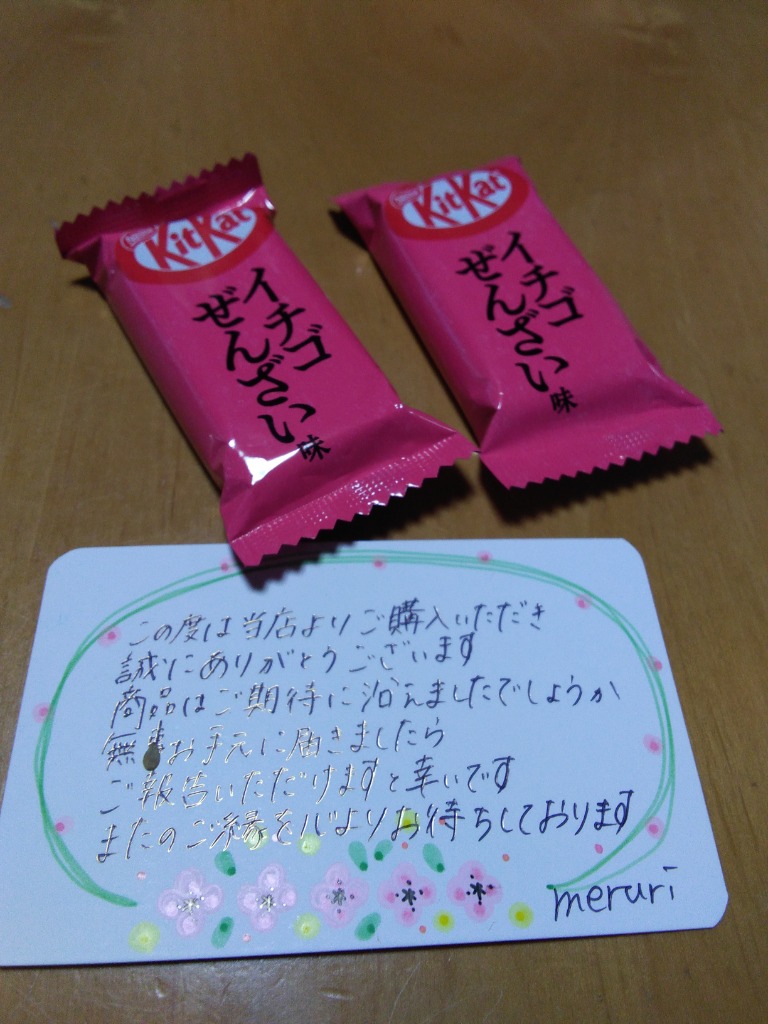 Nestlé
KitKat
イチゴ
ぜんざい味
Nestlé
KitKat
イチゴ
ぜんざい味
この度は当店よりご購入いただき
誠にありがとうございます
商品はご期待に沿えましたでしょうか
無事お手元に届きましたら
ご報告いただけますと幸いです
またのご縁を心よりお待ちしております
meruri